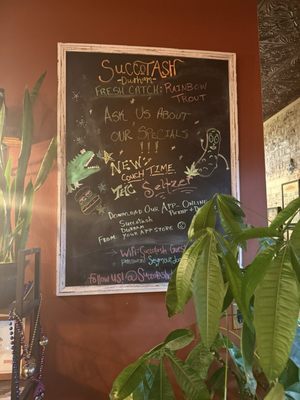 Succotash
-Durham-
Fresh Catch: Rainbow
Trout
Ask Us About
Our Specials
!!!
New:
Couch Time
THC Seltzer
Download Our App
Online
Succotash
Durham
From: Your App Store
WiFi: Succotash Guest
password:
Follow Us! @Succotash